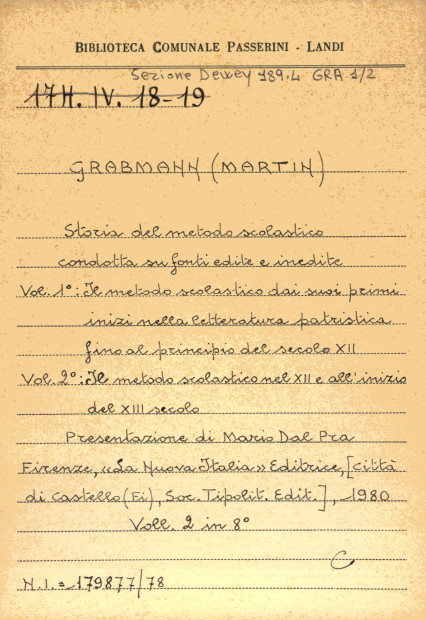 BIBLIOTECA COMUNALE PASSERINI - LANDI
Sezione Dewey 189.4 GRA 1/2
17H. IV. 18-19
GRABMANN (MARTIN)
Storia del metodo scolastico
condotta su fonti edite e inedite
Vol. 1°: Il metodo scolastico dai suoi primi
inizi nella letteratura patristica
fino al principio del secolo XII
Vol. 2°: Il metodo scolastico nel XII e all'inizio
del XIII secolo
Presentazione di Mario Dal Pra
Firenze, «La Nuova Italia» Editrice, [Città
di Castello (Fi), Soc. Tipolit. Edit.], 1980
Voll. 2 in 8°
C
N.I. = 179877/78